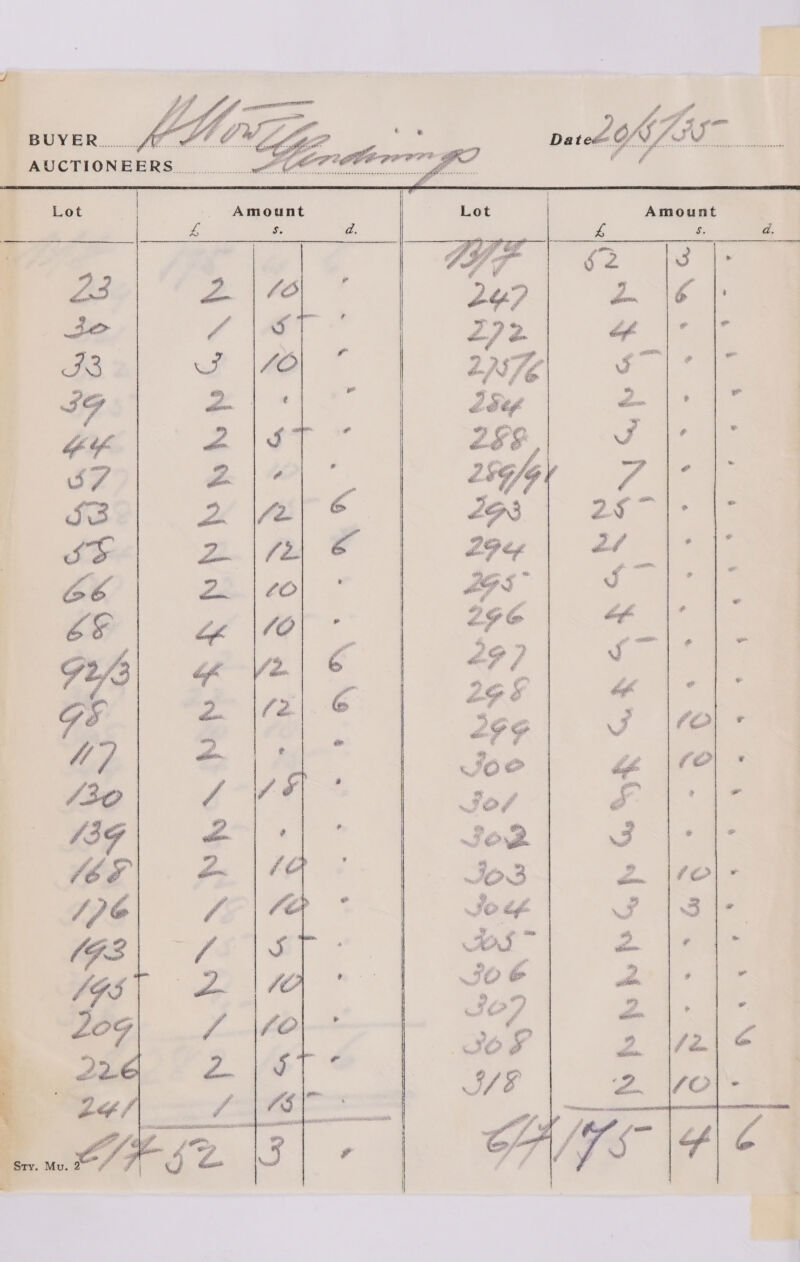 BUYER
Date 20/5/35
AUCTIONEERS Glendinings
Lot Amount Lot Amount
£ s. d. £ s. d.
B/F 52 3 -
23 2 10 - 247 2 6 -
30 1 5 - 272 4 - -
33 3 10 - 275/6 5 - -
39 2 - - 284 2 - -
44 2 5 - 288 3 - -
57 2 - - 289/91 7 - -
53 2 12 6 293 25 - -
58 2 12 6 294 21 - -
66 2 10 - 295 5 - -
68 4 10 - 296 4 - -
92/3 4 12 6 297 5 - -
98 2 12 6 298 4 - -
117 2 - - 299 3 10 -
130 1 18 - 300 4 10 -
139 2 - - 301 8 - -
168 2 10 - 302 3 - -
176 1 10 - 303 2 10 -
193 1 5 - 304 3 3 -
195 2 10 - 305 2 - -
209 1 10 - 306 2 - -
226 2 5 - 307 2 - -
241 1 15 - 308 2 12 6
318 2 10 -
C/F 52 3 - C/F 175 4 6
Sty. Mu. 2